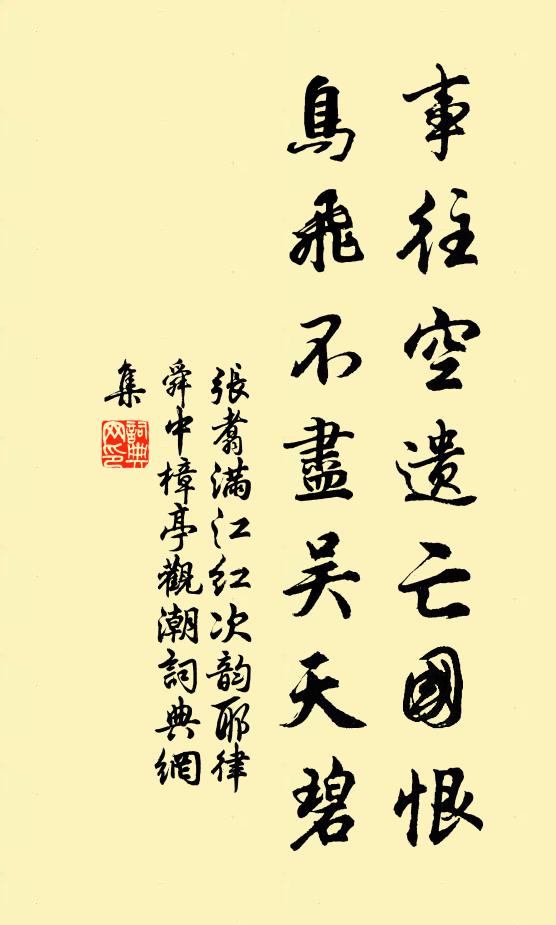 事往空遺亡國恨
鳥飛不盡吴天碧
張翥滿江紅次韵耶律
舜中樟亭觀潮詞典網
集
詞典网印